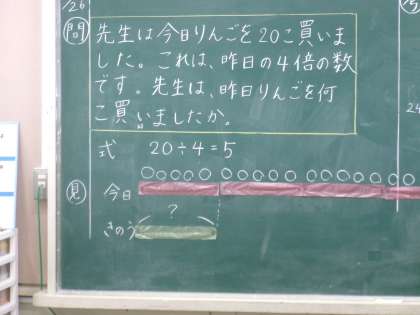 /26
問
先生は今日りんごを20こ買いま
した。これは、昨日の4倍の数
です。先生は、昨日りんごを何
こ買いましたか。
式 20÷4=5
見 今日
?
きのう
24